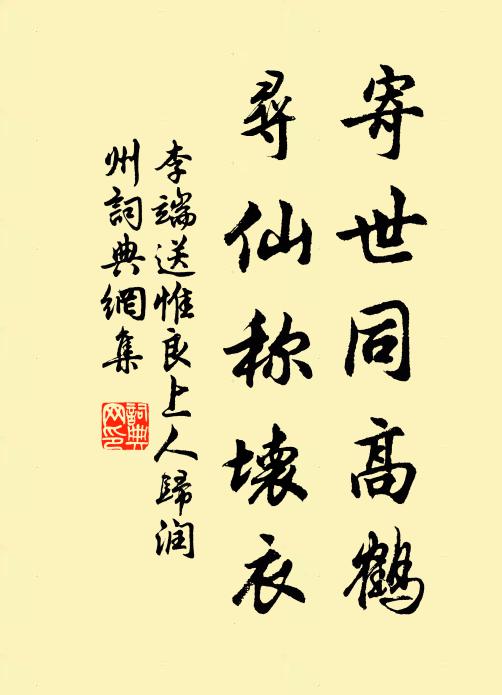 寄世同高鶴
尋仙称壊衣
李端送惟良上人歸润
州詞典網集
詞典
网印